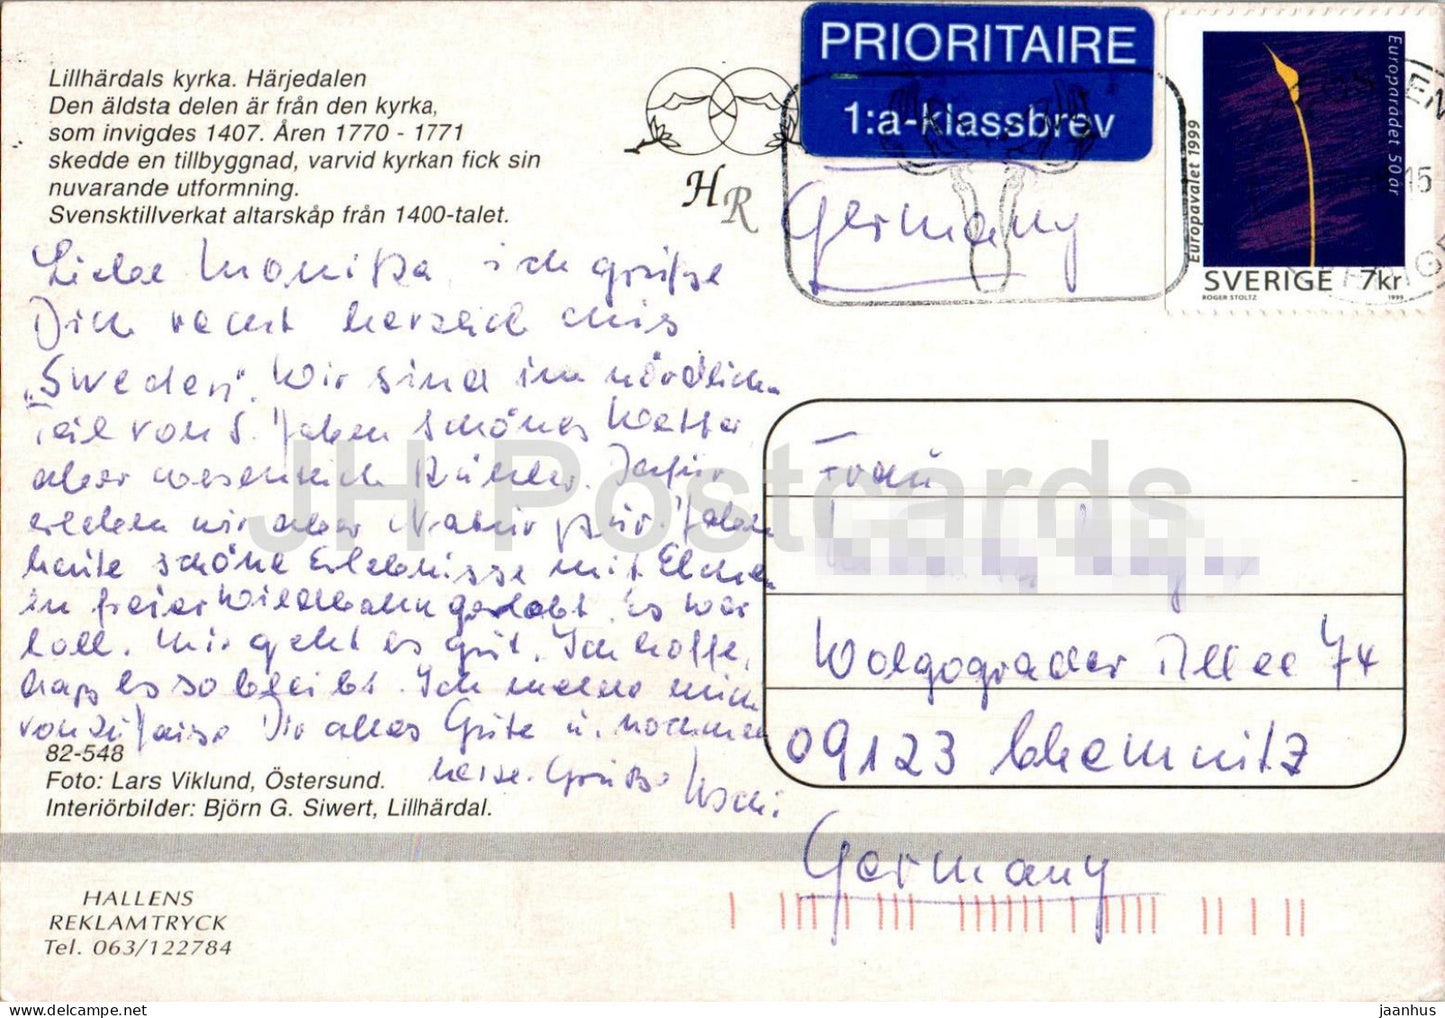 Lillhärdals kyrka. Härjedalen
Den äldsta delen är från den kyrka,
som invigdes 1407. Åren 1770 - 1771
skedde en tillbyggnad, varvid kyrkan fick sin
nuvarande utformning.
Svensktillverkat altarskåp från 1400-talet.
HR
PRIORITAIRE
1:a-klassbrev
Germany
Europavalet 1999
Europarådet 50 år
SVERIGE 7kr
ROGER STOLTZ 1999
Liebe Monika, ich grüße
Dich recht herzlich aus
„Sweden". Wir sind im nördlichen
Teil von S. Haben schönes Wetter,
aber wesentlich kühler. Dafür
erleben wir aber Natur pur. Haben
heute schöne Erlebnisse mit Elchen
in freier Wildbahn gehabt. Es war
toll. Mir geht es gut. Ich hoffe,
daß es so bleibt. Ich melde mich
von zu Hause. Dir alles Gute u. nochmal
herzl. Grüße Uschi.
82-548
Foto: Lars Viklund, Östersund.
Interiörbilder: Björn G. Siwert, Lillhärdal.
Frau
Wolgograder Allee 74
09123 Chemnitz
Germany
HALLENS
REKLAMTRYCK
Tel. 063/122784
JH Postcards
delcampe.net
jaanhus